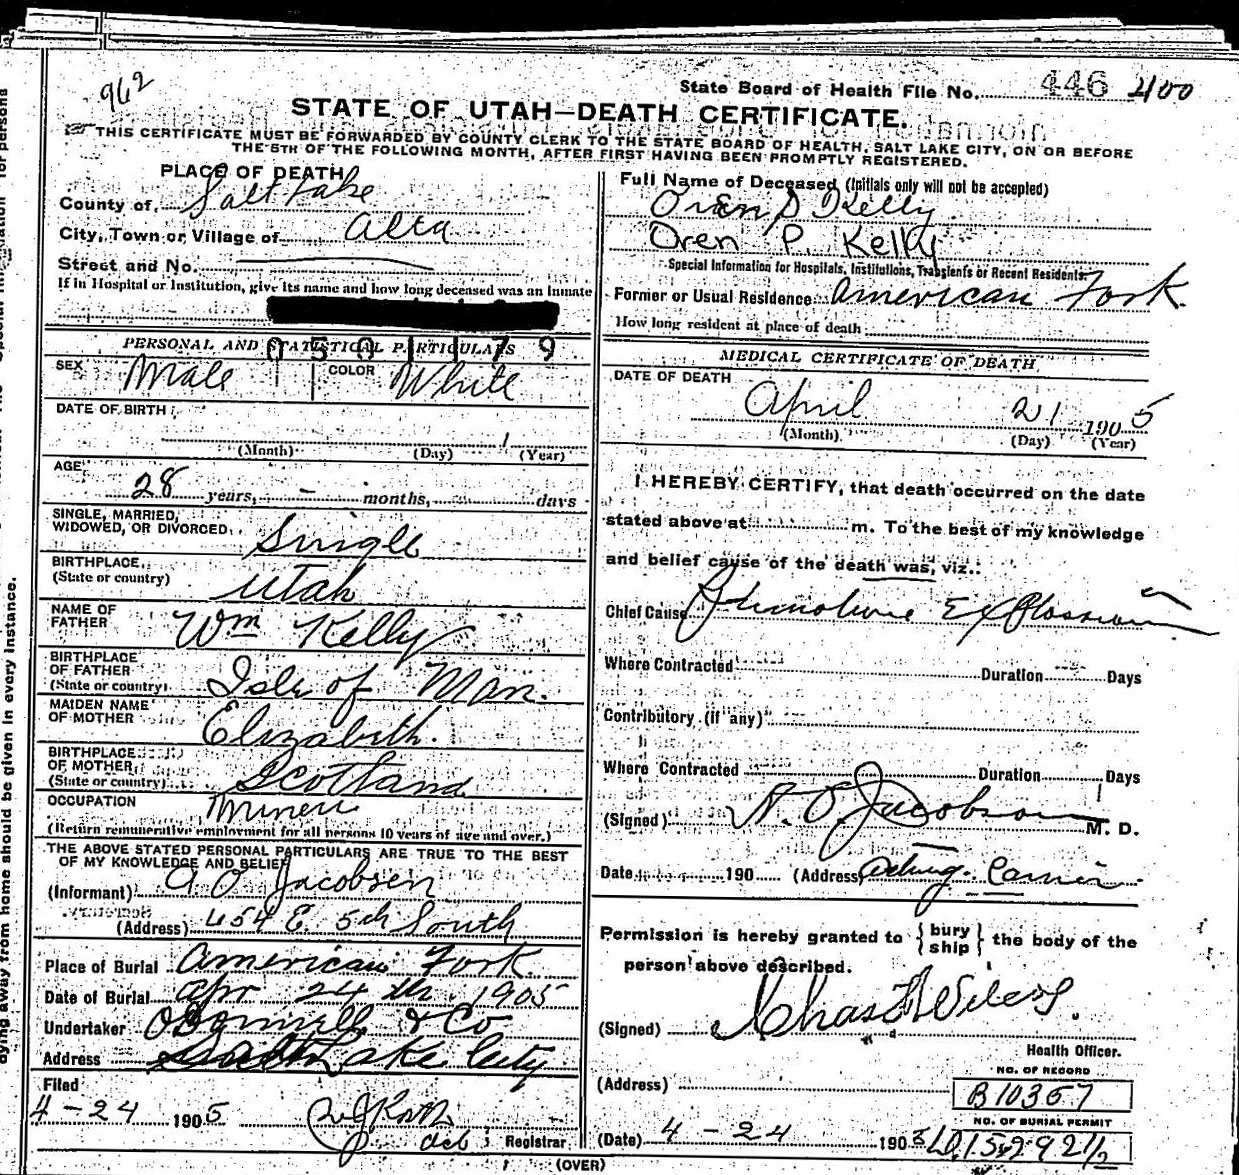 962
State Board of Health File No. 446 400
STATE OF UTAH—DEATH CERTIFICATE.
THIS CERTIFICATE MUST BE FORWARDED BY COUNTY CLERK TO THE STATE BOARD OF HEALTH, SALT LAKE CITY, ON OR BEFORE
THE 5TH OF THE FOLLOWING MONTH, AFTER FIRST HAVING BEEN PROMPTLY REGISTERED.
PLACE OF DEATH
County of Salt Lake
City, Town or Village of Alta
Street and No.
If in Hospital or Institution, give its name and how long deceased was an inmate
PERSONAL AND STATISTICAL PARTICULARS
SEX Male COLOR White
DATE OF BIRTH
1
(Month) (Day) (Year)
AGE
28 years, – months, days
SINGLE, MARRIED,
WIDOWED, OR DIVORCED Single
BIRTHPLACE
(State or country) Utah
NAME OF
FATHER Wm Kelly
BIRTHPLACE
OF FATHER
(State or country) Isle of Man.
MAIDEN NAME
OF MOTHER Elizabeth.
BIRTHPLACE
OF MOTHER
(State or country) Scotland
OCCUPATION Miner
(Return remunerative employment for all persons 10 years of age and over.)
THE ABOVE STATED PERSONAL PARTICULARS ARE TRUE TO THE BEST
OF MY KNOWLEDGE AND BELIEF
(Informant) A O Jacobsen
(Address) 654 E. 5th South
Place of Burial American Fork.
Date of Burial Apr 24th. 1905
Undertaker & Co
Address Salt Lake City
Filed
4 - 24 1905
Registrar
Full Name of Deceased (Initials only will not be accepted)
Oren P Kelly
Oren P. Kelly
Special Information for Hospitals, Institutions, Transients or Recent Residents
Former or Usual Residence American Fork.
How long resident at place of death
MEDICAL CERTIFICATE OF DEATH
DATE OF DEATH
April 21 1905
(Month) (Day) (Year)
I HEREBY CERTIFY, that death occurred on the date
stated above at m. To the best of my knowledge
and belief cause of the death was, viz.:
Chief Cause Explossion
Where Contracted Duration Days
Contributory (if any)
Where Contracted Duration Days
(Signed) A. O. Jacobson M. D.
Date 190 (Address) Acting
Permission is hereby granted to {bury
ship} the body of the
person above described.
(Signed) Chas
Health Officer.
(Address)
NO. OF RECORD
B10367
NO. OF BURIAL PERMIT
(Date) 4 - 24 1905
(OVER)
dying away from home should be given in every instance.